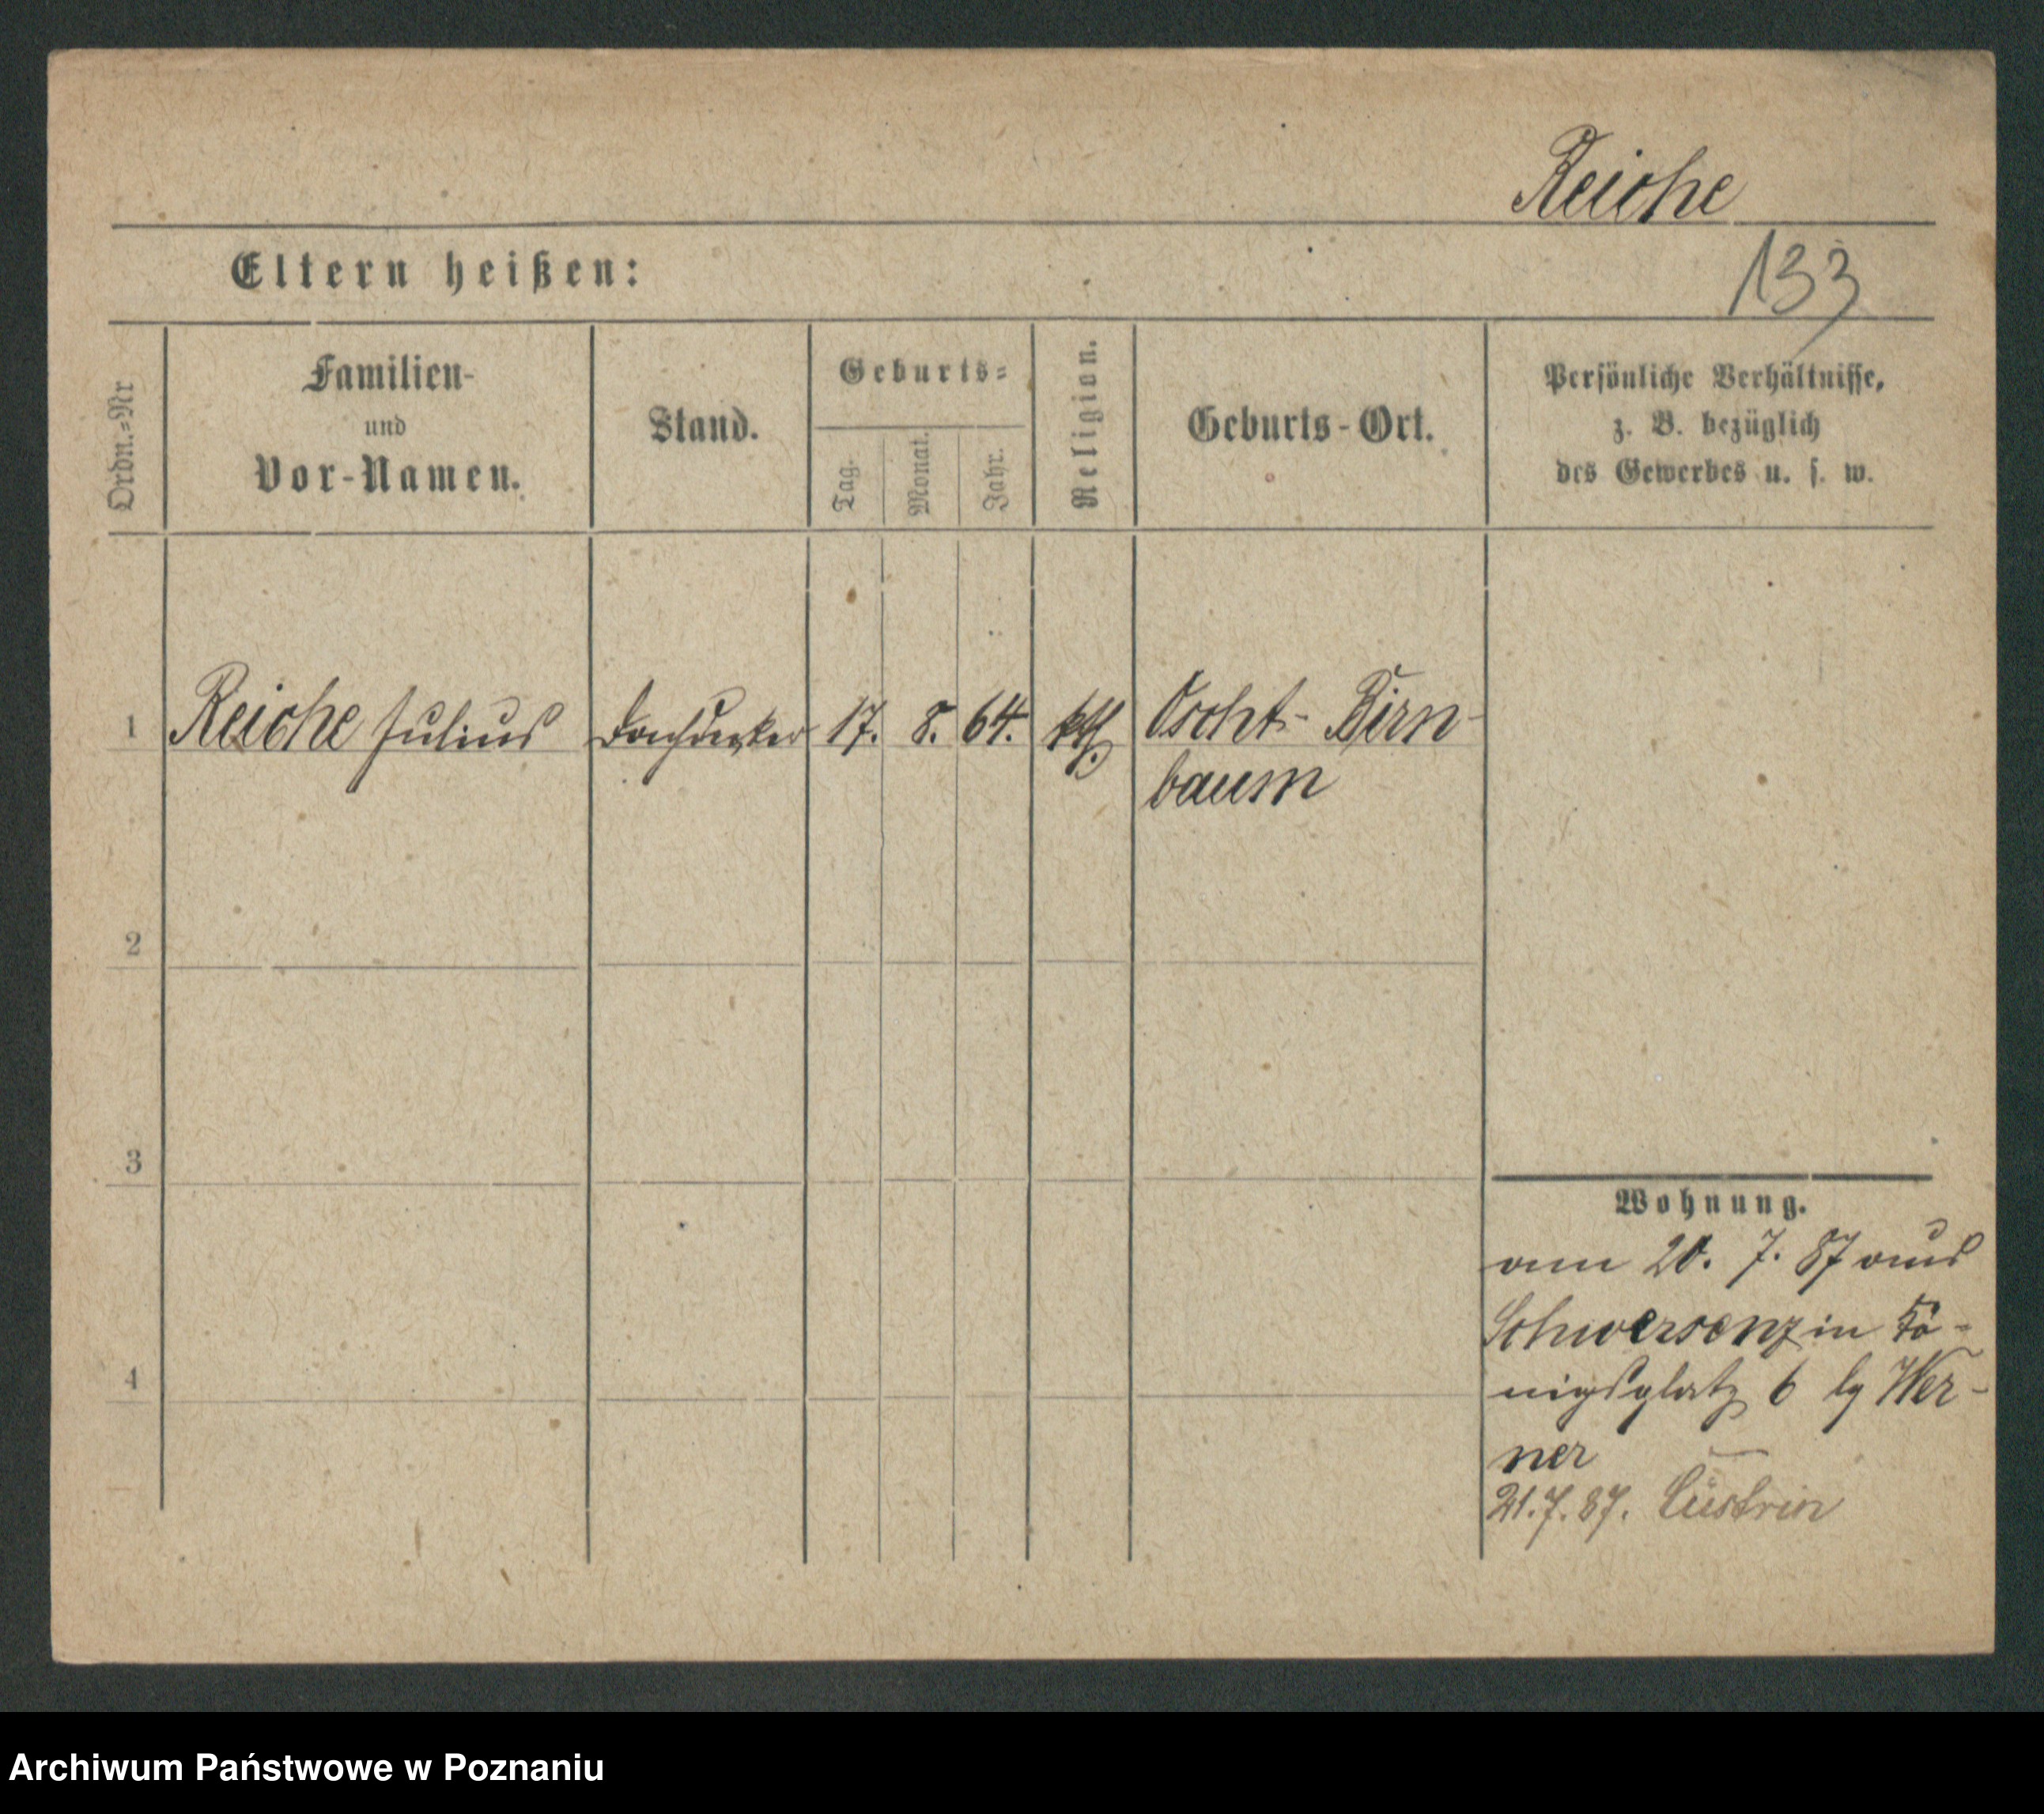 Reiche
Eltern heißen:
133
Ordn.-Nr
Familien-
und
Vor-Namen.
Stand.
Geburts-
Tag.
Monat.
Jahr.
Religion.
Geburts-Ort.
Persönliche Verhältnisse,
z. B. bezüglich
des Gewerbes u. s. w.
1 Reiche Julius Dachdecker 17. 8. 64. kth. Oscht- Birn-
baum
2
3
Wohnung.
am 20. 7. 87 aus
Schwersenz in Kö-
nigsplatz 6 bei Wer-
ner
4
21.7.87. Cüstrin
Archiwum Państwowe w Poznaniu